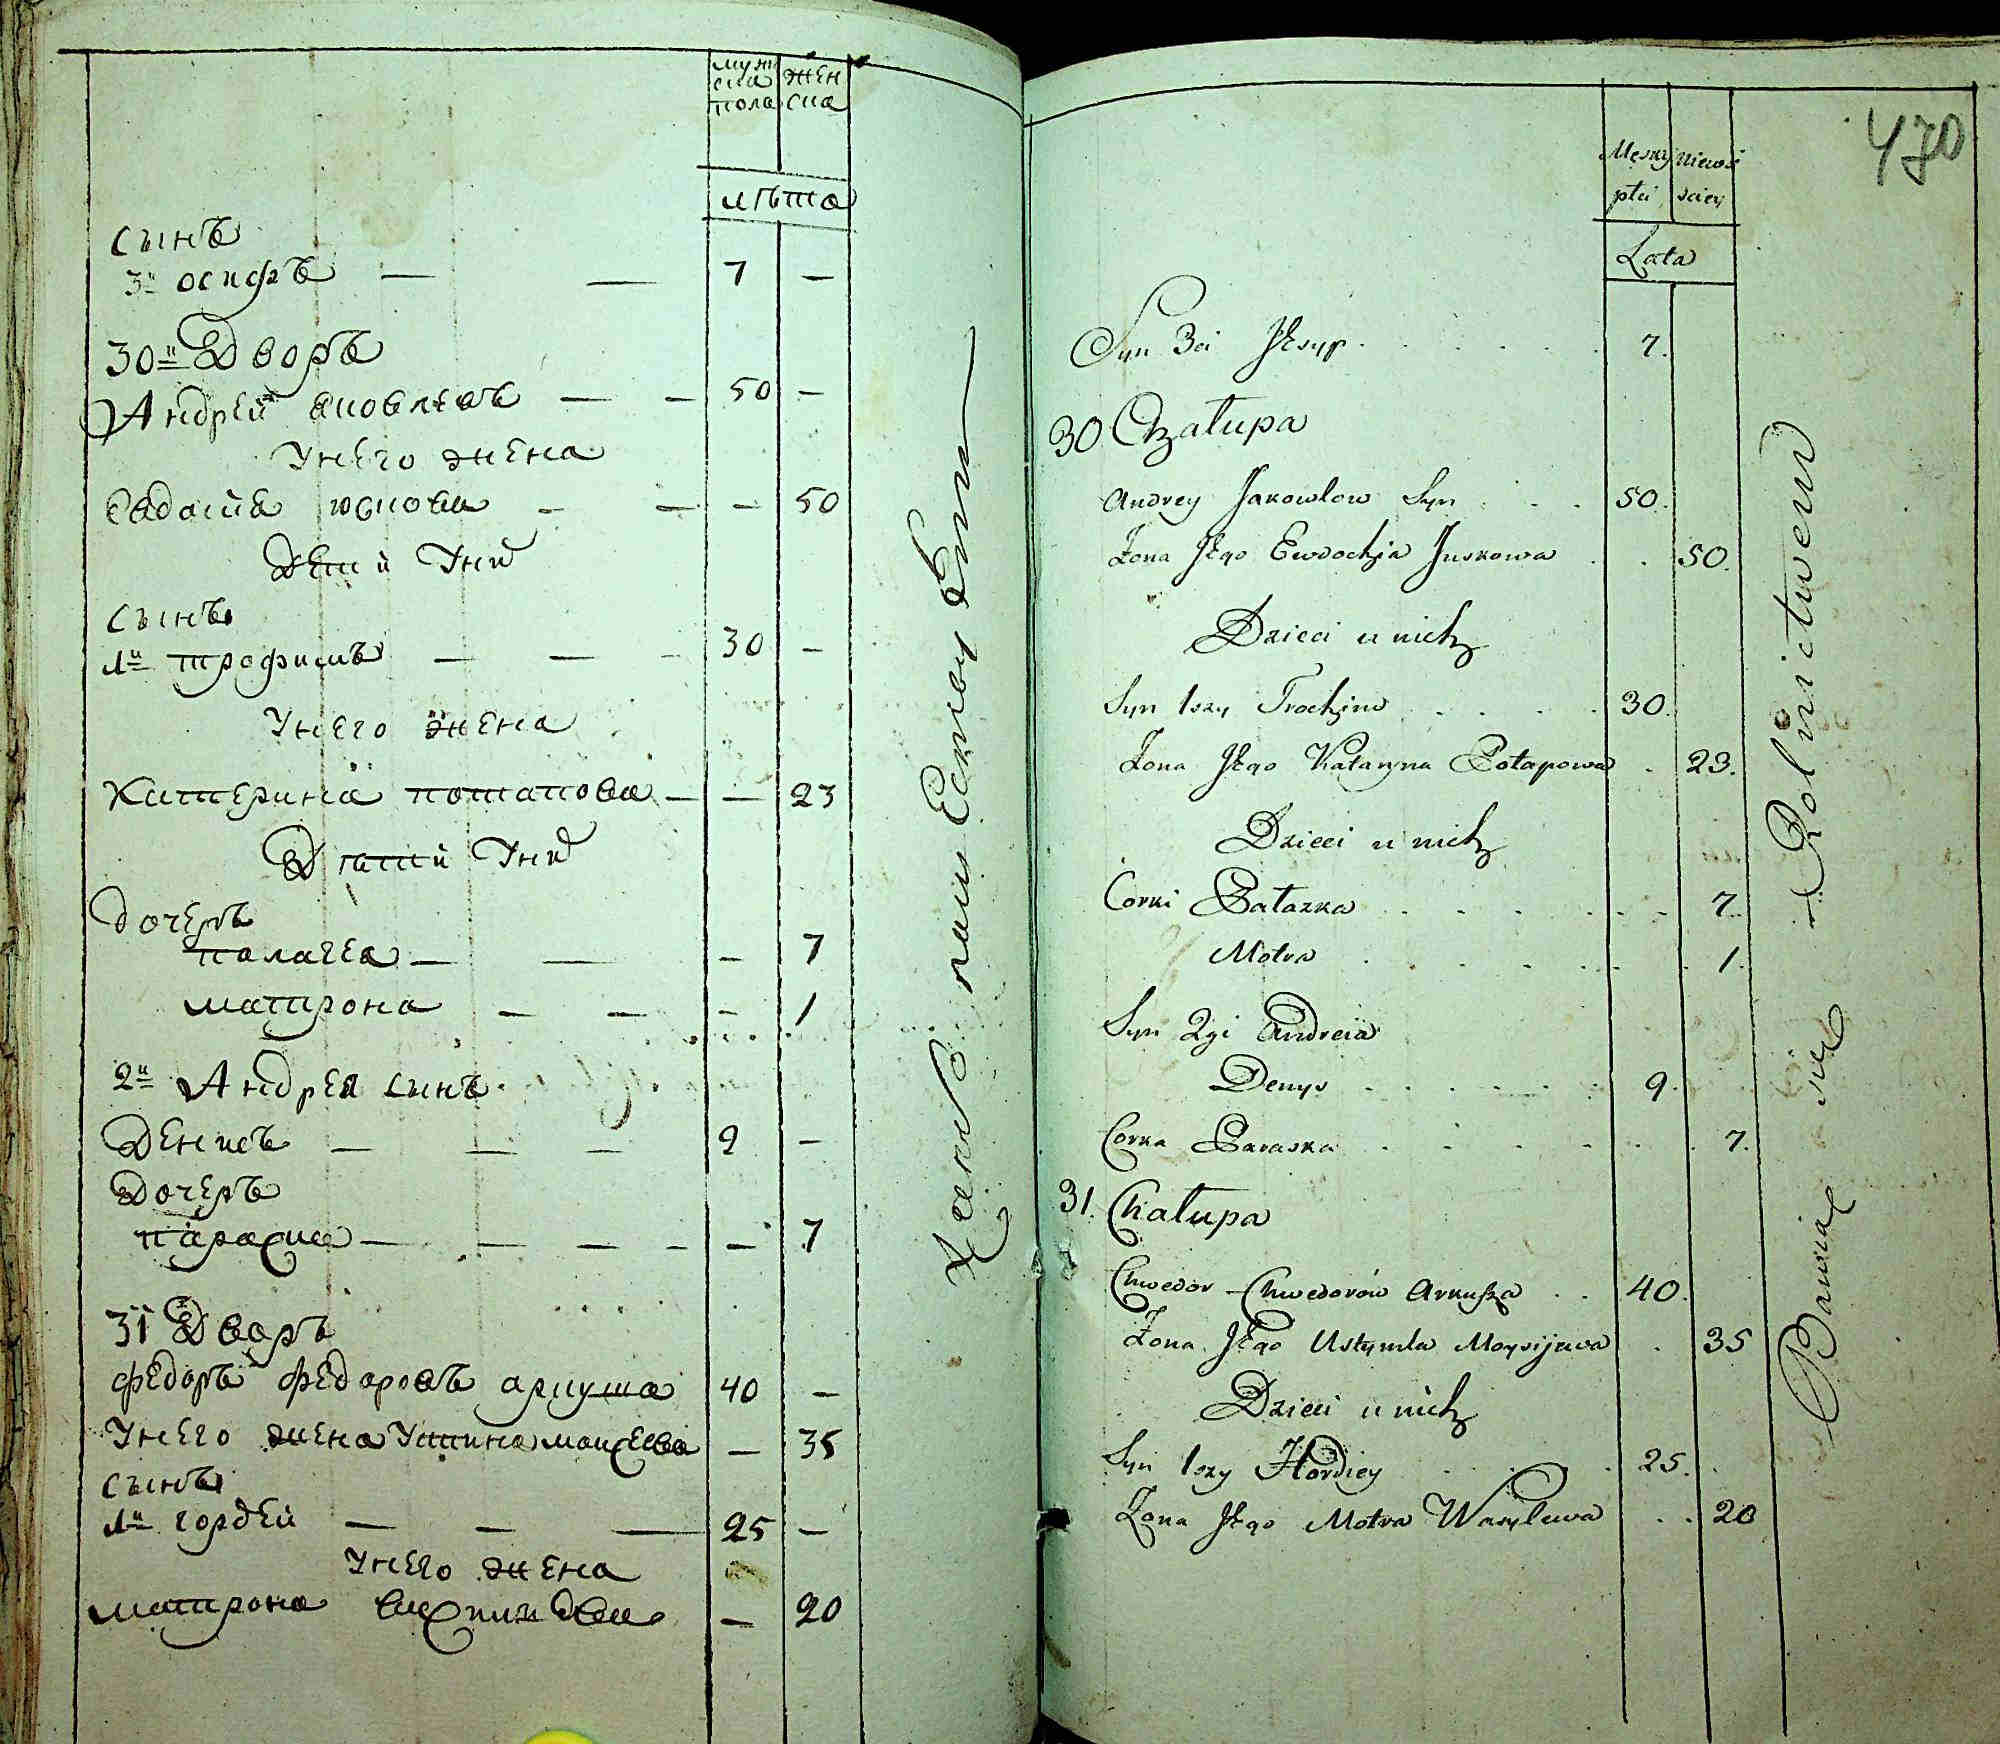 муж жен
ска ска
пола
лѣта
сынъ
3й осифъ — — 7 —
30й Дворъ
Андрей яковлевъ — — 50 —
У него жена
Евдокия юскова — — — 50
Дети У ни
сынъ
1й трофимъ — — — 30 —
У него жена
Катерина потапова — — 23
Дѣти У ни
дочерь
палагея — — — 7
матрона — — — 1
2й Андрея сынъ
Денисъ — — — 9 —
Дочерь
параския — — — — — 7
31 Дворъ
федоръ федоровъ аркуша 40 —
У него жена Устина моисеева — 35
сынъ
1й гордей — — — 25 —
У него жена
матрона — 20
470
Męskiej niewie
płci sciey
Lata
Syn 3ci Jesyp 7.
30 Chałupa
Andrey Jakowlow Syn 50.
Żona Jego Ewdochja Juskowa 50.
Dzieci u nich
Syn 1szy Trochim 30.
Żona Jego Kataryna Potapowa 23.
Dzieci u nich
Corki Pałazka 7.
Motra 1.
Syn 2gi Andreia
Denys 9.
Corka Paraska 7.
31. Chałupa
Chwedor Chwedorów Arkusza 40.
Żona Jego Ustymla Moysijewa 35
Dzieci u nich
Syn 1szy Hordiey 25.
Żona Jego Motra Wasylewa 20
Bawią się Rolnictwem